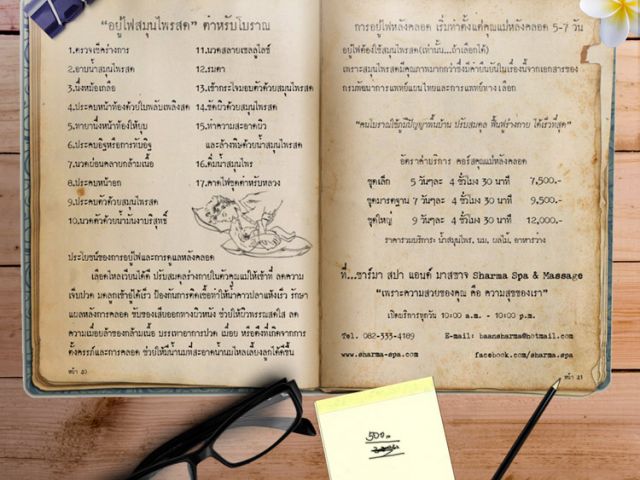 "อยู่ไฟสมุนไพรสด" ตำหรับโบราณ
1.ตรวจเช็คร่างการ
2.อาบน้ำสมุนไพรสด
3.นึ่งหม้อเกลือ
4.ประคบหน้าท้องด้วยใบพลับพลึงสด
5.ทายานึ่งหน้าท้องให้ยุบ
6.ประคบอิฐหรือการทับอิฐ
7.นวดผ่อนคลายกล้ามเนื้อ
8.ประคบหน้าอก
9.ประคบตัวด้วยสมุนไพรสด
10.นวดตัวด้วยน้ำมันงาบริสุทธิ์
11.นวดสลายเซลลูไลซ์
12.รมตา
13.เข้ากระโจมอบตัวด้วยสมุนไพรสด
14.ขัดผิวด้วยสมุนไพรสด
15.ทำความสะอาดผิว
และล้างพิษด้วยน้ำสมุนไพรสด
16.ดื่มน้ำสมุนไพร
17.คาดไฟชุดตำหรับหลวง
ประโยชน์ของการอยู่ไฟและการดูแลหลังคลอด
เลือดไหลเวียนได้ดี ปรับสมดุลร่างกายในตัวคุณแม่ให้เข้าที่ ลดความ
เจ็บปวด มดลูกเข้าอู่ได้เร็ว ป้องกันการติดเชื้อทำให้น้ำคาวปลาแห้งเร็ว รักษา
แผลหลังการคลอด ขับของเสียออกทางผิวหนัง ช่วยให้ผิวพรรณสดใส ลด
ความเมื่อยล้าของกล้ามเนื้อ บรรเทาอาการปวด เมื่อย หรือตึงที่เกิดจากการ
ตั้งครรภ์และการคลอด ช่วยให้มีน้ำนมที่สะอาดน้ำนมไหลเลี้ยงลูกได้ดีขึ้น
หน้า 20
การอยู่ไฟหลังคลอด เริ่มทำตั้งแต่คุณแม่หลังคลอด 5-7 วัน
อยู่ไฟต้องใช้สมุนไพรสด(เท่านั้น...ถ้าเลือกได้)
เพราะสมุนไพรสดมีคุณภาพมากกว่าซึ่งมีคำยืนยันในเรื่องนี้จากเอกสารของ
กรมพัฒนาการแพทย์แผนไทยและการแพทย์ทางเลือก
"คนโบราณใช้ภูมิปัญญาพื้นบ้าน ปรับสมดุล ฟื้นฟูร่างกาย ได้เร็วที่สุด"
อัตราค่าบริการ คอร์สคุณแม่หลังคลอด
ชุดเล็ก 5 วันๆละ 4 ชั่วโมง 30 นาที 7,500.-
ชุดมารตฐาน 7 วันๆละ 4 ชั่วโมง 30 นาที 9,500.-
ชุดใหญ่ 9 วันๆละ 4 ชั่วโมง 30 นาที 12,000.-
ราคารวมบริการ: น้ำสมุนไพร, นม, ผลไม้, อาหารว่าง
ที่...ชาร์มา สปา แอนด์ มาสซาจ Sharma Spa & Massage
"เพราะความสวยของคุณ คือ ความสุขของเรา"
เปิดบริการทุกวัน 10:00 a.m. - 10:00 p.m.
Tel. 082-333-4189 E-mail: baansharma@hotmail.com
www.sharma-spa.com facebook.com/sharma.spa
หน้า 21